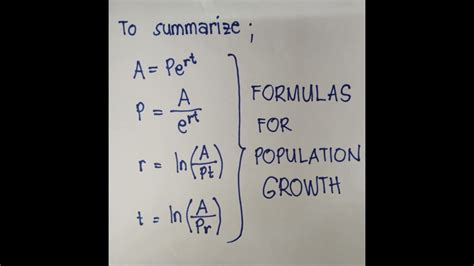 To summarize;
A = Pe^rt
P = A/e^rt
r = ln(A/Pt)
t = ln(A/Pr)
FORMULAS
FOR
POPULATION
GROWTH